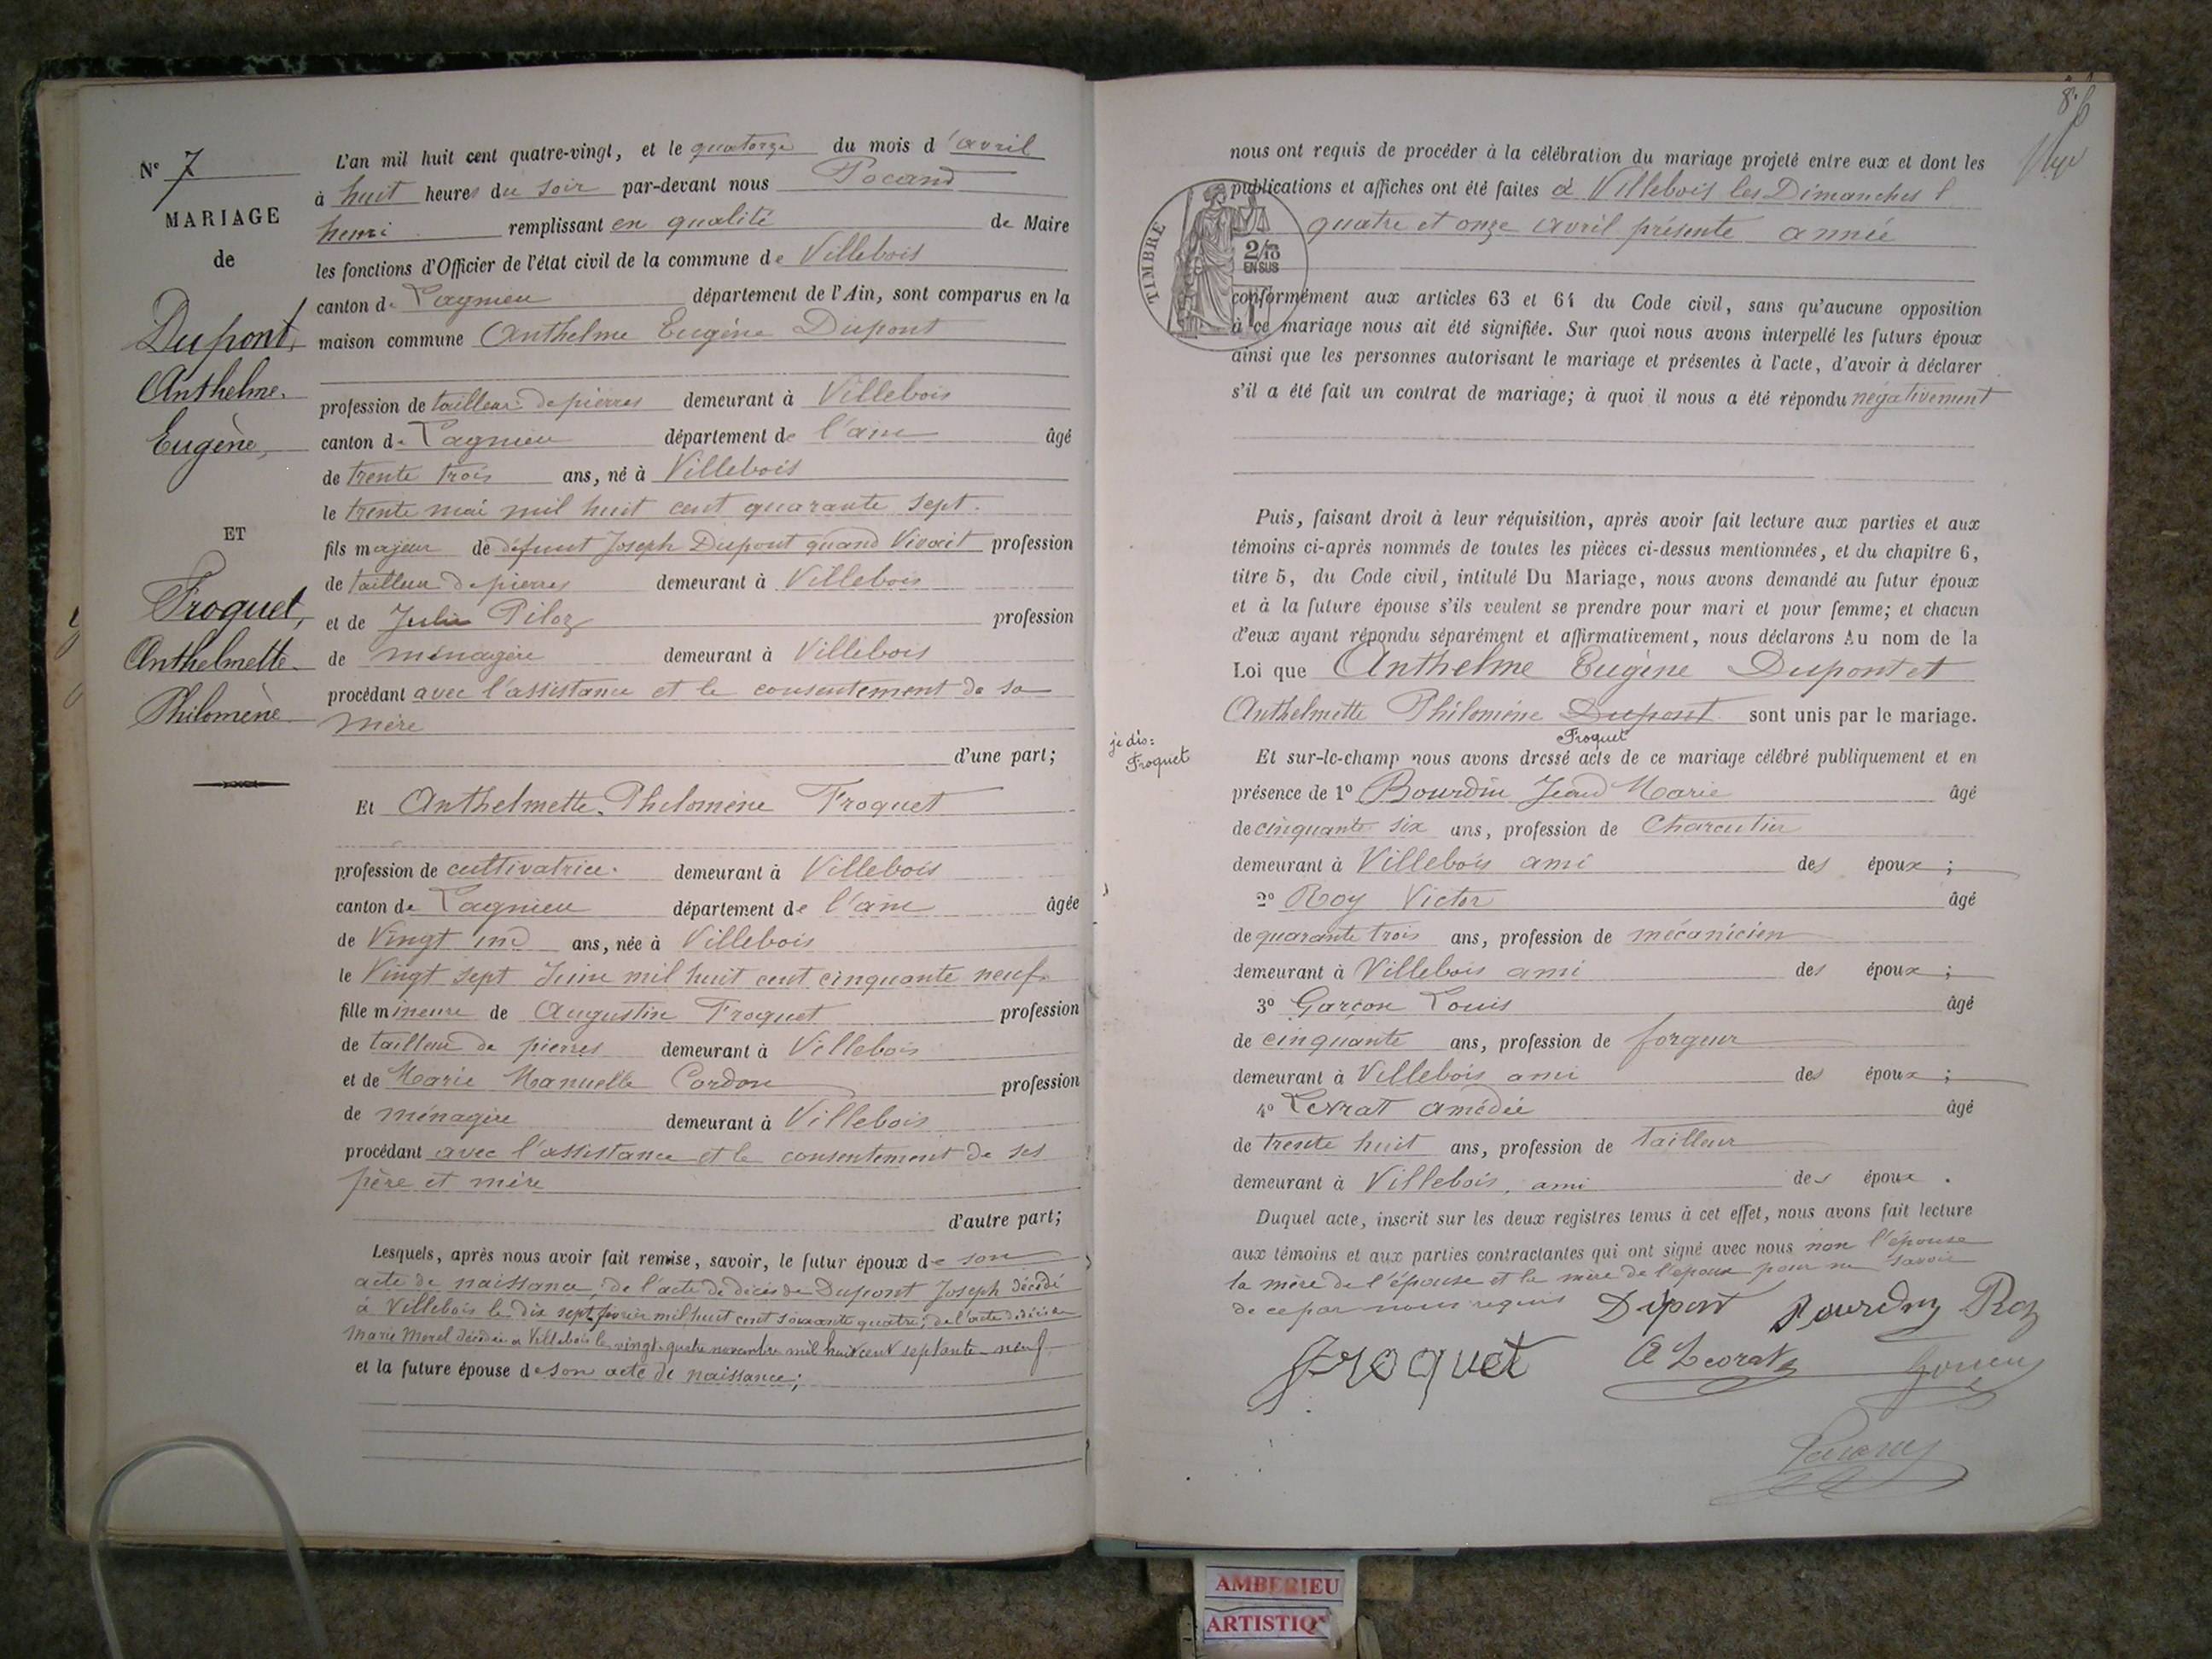 N° 7
MARIAGE
de
Dupont,
Anthelme.
Eugène,
ET
Froquet,
Anthelmette
Philomène
L'an mil huit cent quatre-vingt, et le quatorze du mois d'avril
à huit heures du soir par-devant nous Pocand
henri remplissant en qualité de Maire
les fonctions d'Officier de l'état civil de la commune de Villebois
canton de Lagnieu département de l'Ain, sont comparus en la
maison commune Anthelme Eugène Dupont
profession de tailleur de pierres demeurant à Villebois
canton de Lagnieu département de l'ain âgé
de trente trois ans, né à Villebois
le trente mai mil huit cent quarante sept.
fils majeur de défunt Joseph Dupont quand Vivait profession
de tailleur de pierres demeurant à Villebois
et de Julie Piloz profession
de ménagère demeurant à Villebois
procédant avec l'assistance et le consentement de sa
mère
d'une part;
Et Anthelmette Philomène Froquet
profession de cultivatrice. demeurant à Villebois
canton de Lagnieu département de l'ain âgée
de Vingt un ans, née à Villebois
le Vingt sept Juin mil huit cent cinquante neuf.
fille mineure de Augustin Froquet profession
de tailleur de pierres demeurant à Villebois
et de Marie Manuelle Cordon profession
de ménagère demeurant à Villebois
procédant avec l'assistance et le consentement de ses
père et mère
d'autre part;
Lesquels, après nous avoir fait remise, savoir, le futur époux de son
acte de naissance, de l'acte de décès de Dupont Joseph décédé
à Villebois le dix sept février mil huit cent soixante quatre; de l'acte de décès de
Marie Morel décédée à Villebois le vingt quatre novembre mil huit cent septante neuf
et la future épouse de son acte de naissance;
8.6
nous ont requis de procéder à la célébration du mariage projeté entre eux et dont les
publications et affiches ont été faites à Villebois les Dimanches
quatre et onze avril présente année
TIMBRE
2/10
EN SUS
conformément aux articles 63 et 64 du Code civil, sans qu'aucune opposition
à ce mariage nous ait été signifiée. Sur quoi nous avons interpellé les futurs époux
ainsi que les personnes autorisant le mariage et présentes à l'acte, d'avoir à déclarer
s'il a été fait un contrat de mariage; à quoi il nous a été répondu négativement
Puis, faisant droit à leur réquisition, après avoir fait lecture aux parties et aux
témoins ci-après nommés de toutes les pièces ci-dessus mentionnées, et du chapitre 6,
titre 5, du Code civil, intitulé Du Mariage, nous avons demandé au futur époux
et à la future épouse s'ils veulent se prendre pour mari et pour femme; et chacun
d'eux ayant répondu séparément et affirmativement, nous déclarons Au nom de la
Loi que Anthelme Eugène Dupont et
Anthelmette Philomène Dupont sont unis par le mariage.
Froquet
je dis:
Froquet
Et sur-le-champ nous avons dressé acts de ce mariage célébré publiquement et en
présence de 1° Bourdin Jean Marie âgé
de cinquante six ans, profession de Charcutier
demeurant à Villebois ami des époux;
2° Roy Victor âgé
de quarante trois ans, profession de mécanicien
demeurant à Villebois ami des époux;
3° Garçon Louis âgé
de cinquante ans, profession de forgeur
demeurant à Villebois ami des époux;
4° Levrat amédée âgé
de trente huit ans, profession de tailleur
demeurant à Villebois, ami des époux.
Duquel acte, inscrit sur les deux registres tenus à cet effet, nous avons fait lecture
aux témoins et aux parties contractantes qui ont signé avec nous non l'épouse
la mère de l'épouse et la mère de l'époux pour ne savoir
de ce par nous requis Dupont Bourdin Roy
Froquet A Levrat
AMBERIEU
ARTISTIQ